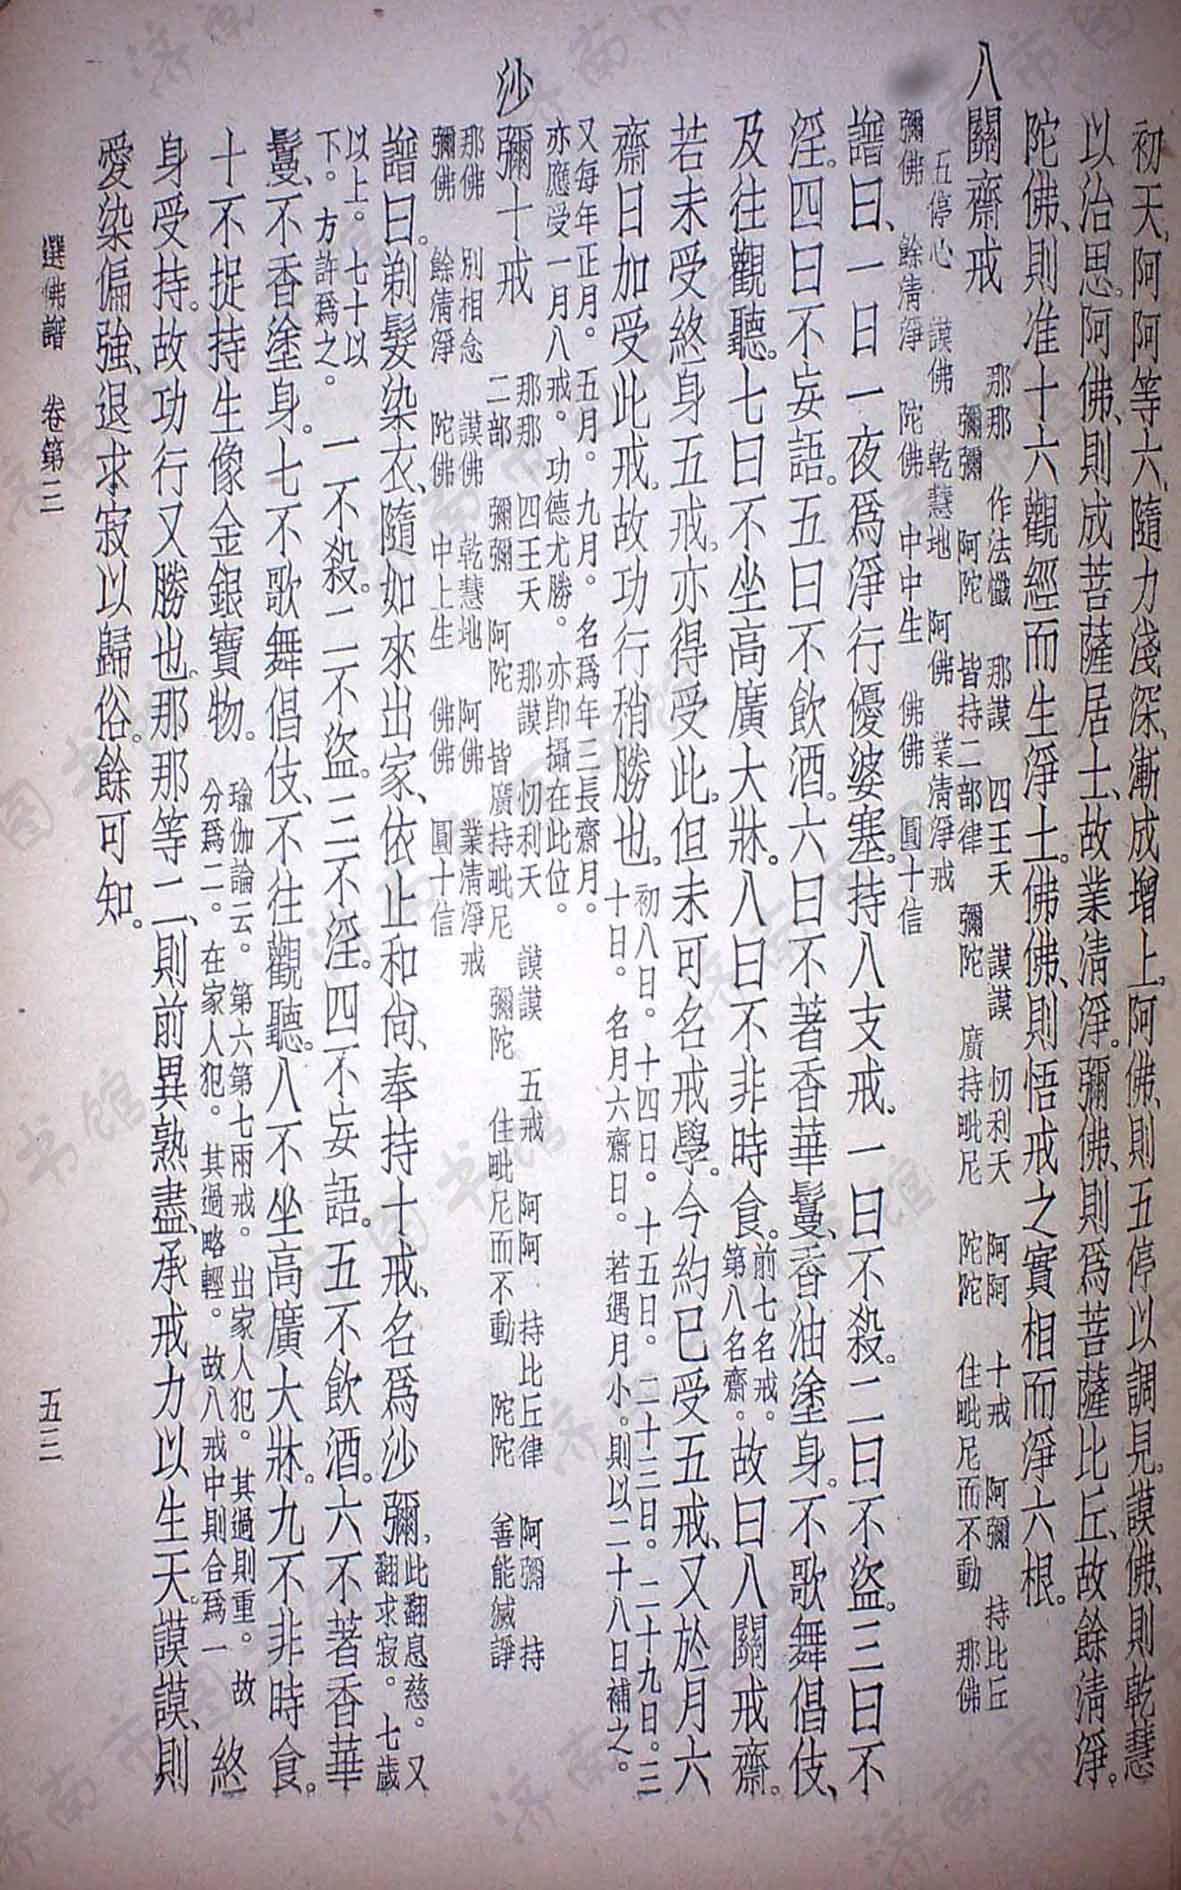 初天、阿阿等六、隨力淺深、漸成增上。阿佛、則五停以調見。謨佛、則乾慧
以治思。阿佛、則成菩薩居士、故業清淨。彌佛、則爲菩薩比丘、故餘清淨。
陀佛、則准十六觀經而生淨土。佛佛、則悟戒之實相而淨六根。
八關齋戒
那那 作法懺 那謨 四王天 謨謨 忉利天 阿阿 十戒 阿彌 持比丘
彌彌 阿陀 皆持二部律 彌陀 廣持毗尼 陀陀 住毗尼而不動 那佛
五停心 謨佛 乾慧地 阿佛 業清淨戒
彌佛 餘清淨 陀佛 中中生 佛佛 圓十信
譜曰、一日一夜爲淨行優婆塞。持八支戒。一曰不殺。二曰不盜。三曰不
淫。四曰不妄語。五曰不飲酒。六曰不著香華鬘、香油塗身。不歌舞倡伎、
及往觀聽。七曰不坐高廣大牀。八曰不非時食。前七名戒。第八名齋。故曰八關戒齋。
若未受終身五戒。亦得受此。但未可名戒學。今約已受五戒、又於月六
齋日加受此戒。故功行稍勝也。初八日。十四日。十五日。二十三日。二十九日。三
十日。名月六齋日。若遇月小。則以二十八日補之。
又每年正月。五月。九月。名爲年三長齋月。
亦應受一月八戒。功德尤勝。亦卽攝在此位。
沙彌十戒
那那 四王天 那謨 忉利天 謨謨 五戒 阿阿 持比丘律 阿彌 持
二部 彌彌 阿陀 皆廣持毗尼 彌陀 住毗尼而不動 陀陀 善能滅諍
那佛 別相念 謨佛 乾慧地 阿佛 業清淨戒
彌佛 餘清淨 陀佛 中上生 佛佛 圓十信
譜曰。剃髮染衣、隨如來出家、依止和尙、奉持十戒、名爲沙彌。此翻息慈。又翻求寂。七歲
以上。七十以
下。方許爲之。一不殺。二不盜。三不淫。四不妄語。五不飲酒。六不著香華
鬘、不香塗身。七不歌舞倡伎、不往觀聽。八不坐高廣大牀。九不非時食。
十不捉持生像金銀寶物。瑜伽論云。第六第七兩戒。出家人犯。其過則重。故分爲二。在家人犯。其過略輕。故八戒中則合爲一 終
身受持。故功行又勝也。那那等二、則前異熟盡、承戒力以生天。謨謨、則
愛染偏強、退求寂以歸俗。餘可知。
選佛譜 卷第三 五三